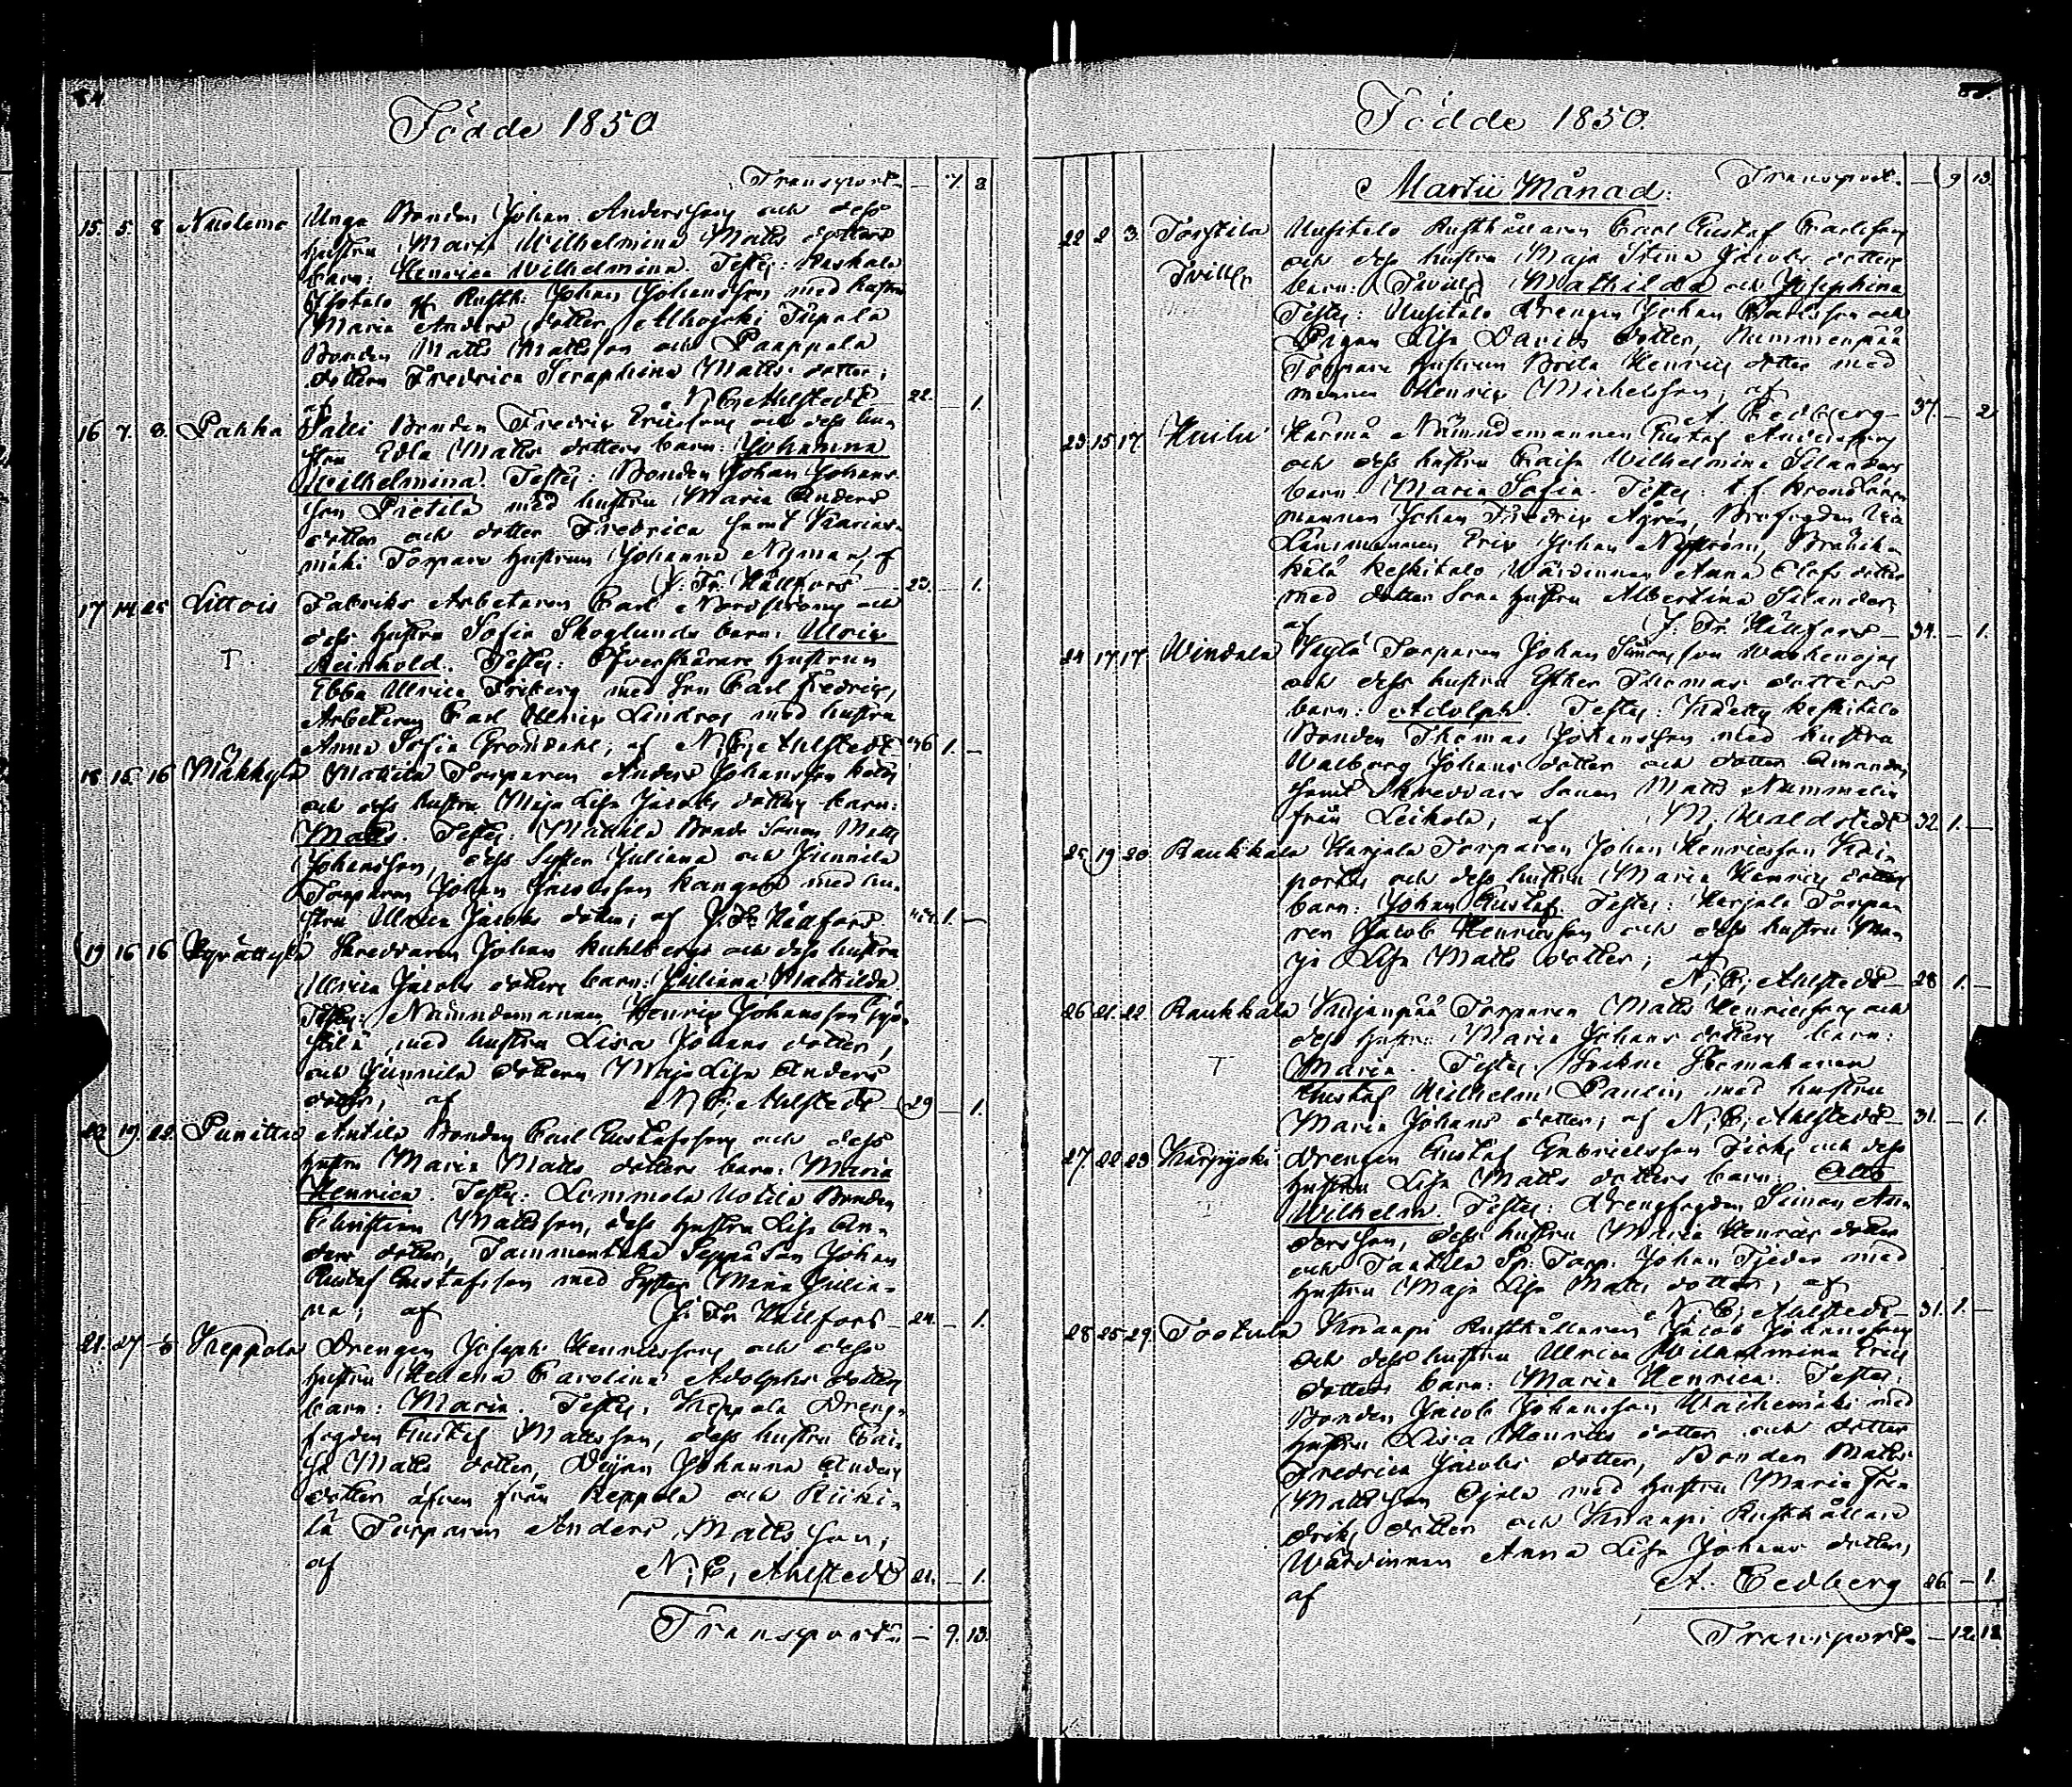 Födde 1850
Transport — 7. 3
15. 5. 8 Nuolemo Unga Bonden Johan Andersson och dess
hustru Maria Wilhelmina Matts dotters
barn: Henrica Wilhelmina. Testes: Kaskala
Ylotalo Rusth: Johan Johansson med hustru
Maria Anders dotter,
Bonden Matts Mattsson och Paappala
dottern Fredrica Seraphina Matts dotter;
af N. C. Ahlstedt — 22. — 1.
16 7. 8. Pahka Bonden Fredric Ericsson och dess hu-
stru Edla Matts dotters barn: Johanna
Wilhelmina. Testes: Bonden Johan Johans-
son Pietilä med hustru Maria Anders
dotter och dotter Fredrica samt
mäki Torpare hustrun Johanna Nyman, af
J. Fr. Hällfors — 23. — 1.
17 14 25 Littois Fabriks Arbetaren Carl Nordström och
dess hustru Sofia Skoglunds barn: Ulric
T. Reinhold. Testes: Öfverskärare hustrun
Ebba Ulrica Friberg med son Carl Fredric,
Arbetaren Carl Ulric Lindros med hustru
Anna Sofia Grondahl, af N. C. Ahlstedt 36 1. —
18. 15. 16 Mäkkylä Mattila Torparen Anders Johansson
och dess hustru Maja Lisa Jacobs dotters barn:
Matts. Testes: Mattila Bonde Sonen Matts
Johansson, dess Syster Juliana och Junnila
Torparen Johan Jacobsson Kangas med hu-
stru Ulrica Jacobs dotter; af J. Fr. Hällfors 1. —
19 16 16 Skreddaren Johan Kuhlbergs och dess hustru
Ulrica Jacobs dotters barn: Juliana Mathilda
Testes: Nämndemannen Henric Johansson
med hustru Lisa Johans dotter,
och Junnila dottern Maja Lisa Anders
dotter, af N. C. Ahlstedt — 29 — 1.
20 19. 22. Punittao Anttila Bonden Carl Gustafsson och dess
hustru Maria Matts dotters barn: Maria
Henrica. Testes: Lemmola Uotila Bonden
Christian Mattsson, dess hustru Lisa An-
ders dotter, Tammentaka Seppä Son Johan
Gustaf Gustafsson med Syster Maria Julia-
na; af J. Fr. Hällfors — 24. — 1.
21. 27 Keppola Drengen Joseph Henricsson och dess
hustru Helena Carolina Adolphs dotters
barn: Maria. Testes: Keppola Dreng-
fogden Gustaf Mattsson, dess hustru Cai-
sa Matts dotter, Pigan Johanna Anders
dotter äfven från Keppola och Riiki-
lä Torparen Anders Mattsson;
af N. C. Ahlstedt 21. — 1.
Transport — 9. 13.
Födde 1850.
Martii Månad. Transport. — 9 13.
22 2 3. Torstila Uusitalo Rusthållaren Carl Gustaf Carlsson
Tvill: och dess hustru Maja Stina Jacobs dotters
barn: (Tvill:) Mathilda och Josephina
Testes: Uusitalo Drengen Johan Carlsson och
Pigan Lisa Davids dotter, Nummenpää
Torpare hustrun Brita Henrics dotter med
mannen Henric Michelsson, af
A. Cedberg — 37. — 2
23. 15 17. Huilu Härmä Nämndemannen Gustaf Andersson
och dess hustru Caisa Wilhelmina Selanders
barn. Maria Sofia. Testes: t. f. Kronolän-
mannen Johan Fredric Agrén, Brofogden
Länsmannen Eric Johan Nyström,
Keskitalo Wärdinnan Anna Elofs dotter
med dotter Sona hustru Albertina Selander,
af J. Fr. Hällfors — 34. — 1.
24 17 17 Windala Torparen Johan Simonsson
och dess hustru Esther Thomas dotters
barn: Adolph. Testes: Keskitalo
Bonden Thomas Johansson med hustru
Walborg Johans dotter och dotter Amanda,
samt Skreddare Sonen Matts Nummelin
från Leikola; af M. Waldstedt 32. 1. —
25 19 20 Raukkala Harjala Torparen Johan Henricsson
och dess hustru Maria Henrics dotters
barn: Johan Gustaf. Testes: Harjala Torpa-
ren Jacob Henricsson och dess hustru Ma-
ja Lisa Matts dotter; af
N. C. Ahlstedt — 28 1. —
26 21. 22. Raukkala Torparen Matts Henricsson och
dess hustru Maria Johans dotters barn:
T Maria. Testes: Sockne Skomakaren
Gustaf Wilhelm Paulin med hustru
Maria Johans dotter; af N. C. Ahlstedt — 31. — 1.
27. 22. 23 Karpijoki Drengen Gustaf Gabrielsson och dess
hustru Lisa Matts dotters barn: Otto
Wilhelm. Testes: Drengfogden Simon An-
dersson, dess hustru Maria Henrics dotter
och Tanttila Sp. Torp. Johan Tjeder med
hustru Maja Lisa Matts dotter; af
N. C. Ahlstedt — 31. 1. —
28 25 29. Tortula Knaapi Rusthållaren Jacob Johansson
och dess hustru Ulrica Wilhelmina Erics
dotters barn: Maria Henrica. Testes:
Bonden Jacob Johansson Wähemäki med
hustru Lisa Henrics dotter och dotter
Fredrica Jacobs dotter, Bonden Matts
Mattsson Ojala med hustru Maria Fre-
driks dotter och Knaapi Rusthållare
Wärdinnan Anna Lisa Johans dotter,
af A. Cedberg 26 — 1.
Transport — 12. 18